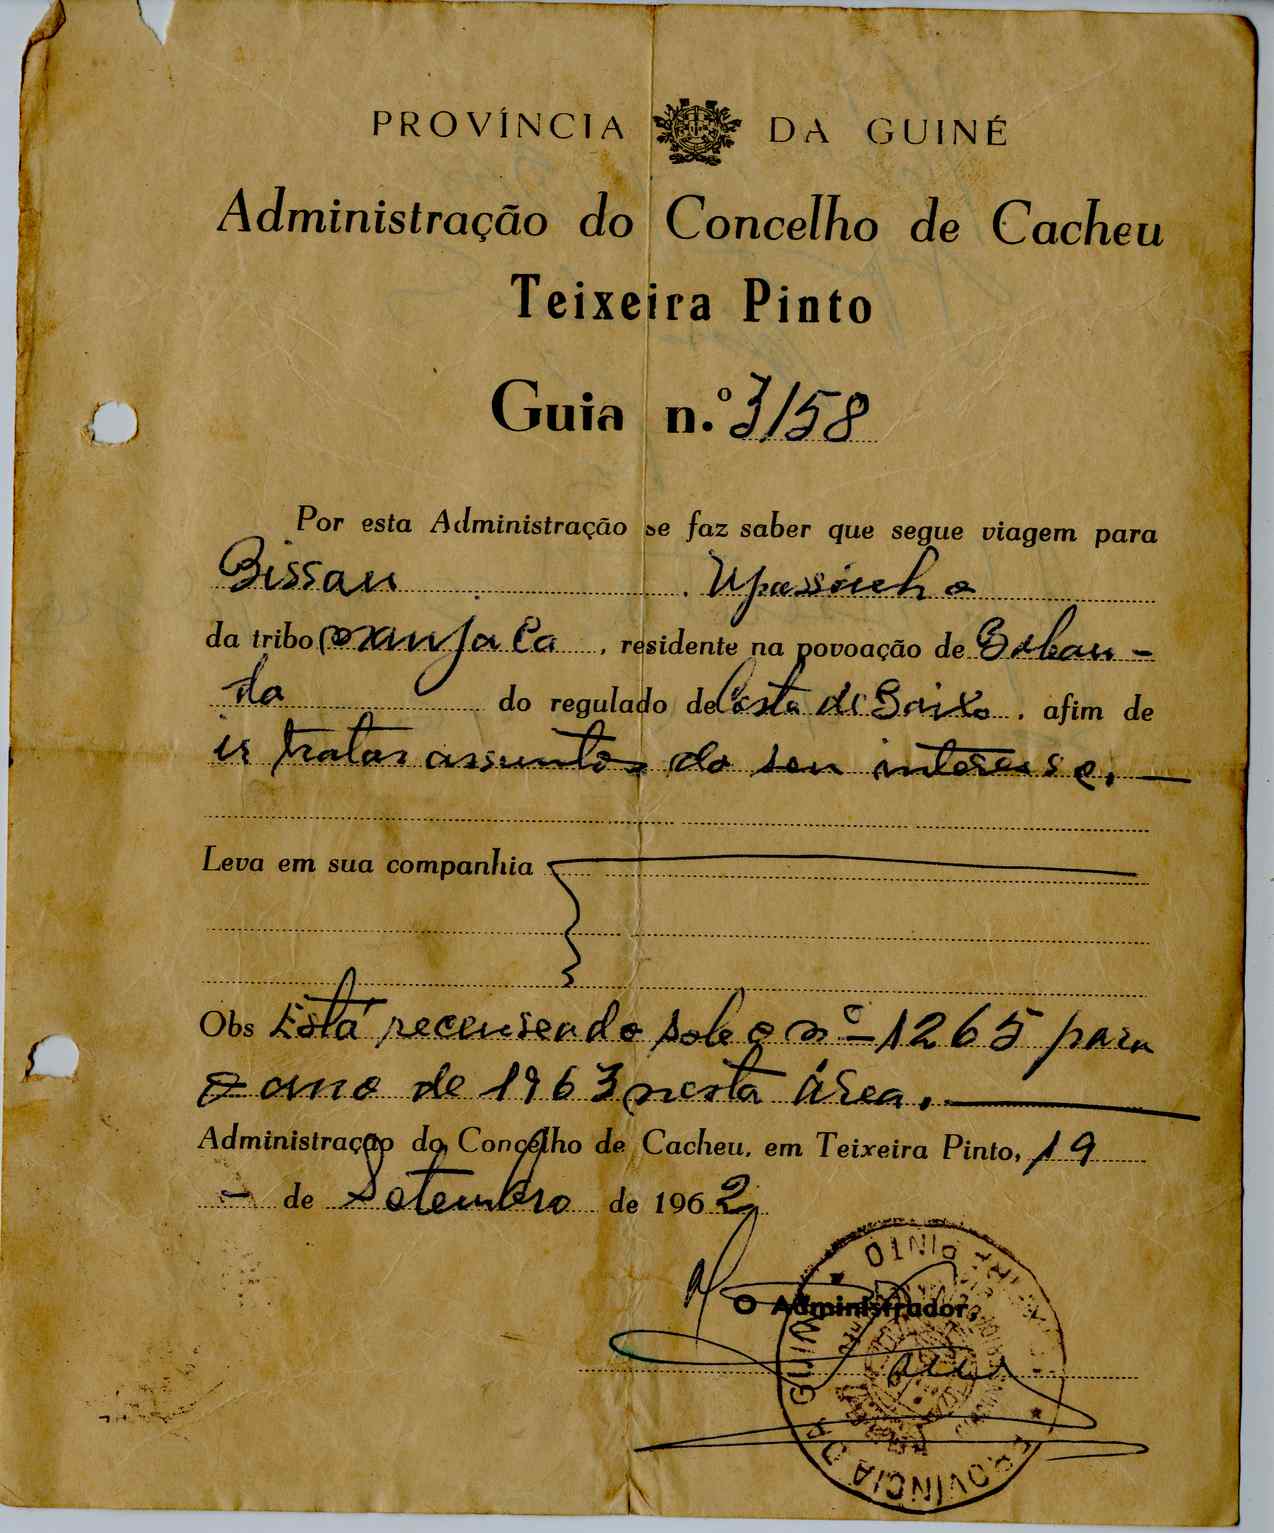 PROVÍNCIA DA GUINÉ
Administração do Concelho de Cacheu
Teixeira Pinto
Guia n.º 3/58
Por esta Administração se faz saber que segue viagem para
Bissau
da tribo manjaca, residente na povoação de
do regulado de Costa de Baixo, afim de
ir tratar assuntos do seu interesse.
Leva em sua companhia
Obs Está recenseado sob o nº 1265 para
o ano de 1963 nesta área.
Administração do Concelho de Cacheu, em Teixeira Pinto, 19
- de Setembro de 1962
O Administrador,
PROVÍNCIA DA GUINÉ
PINTO